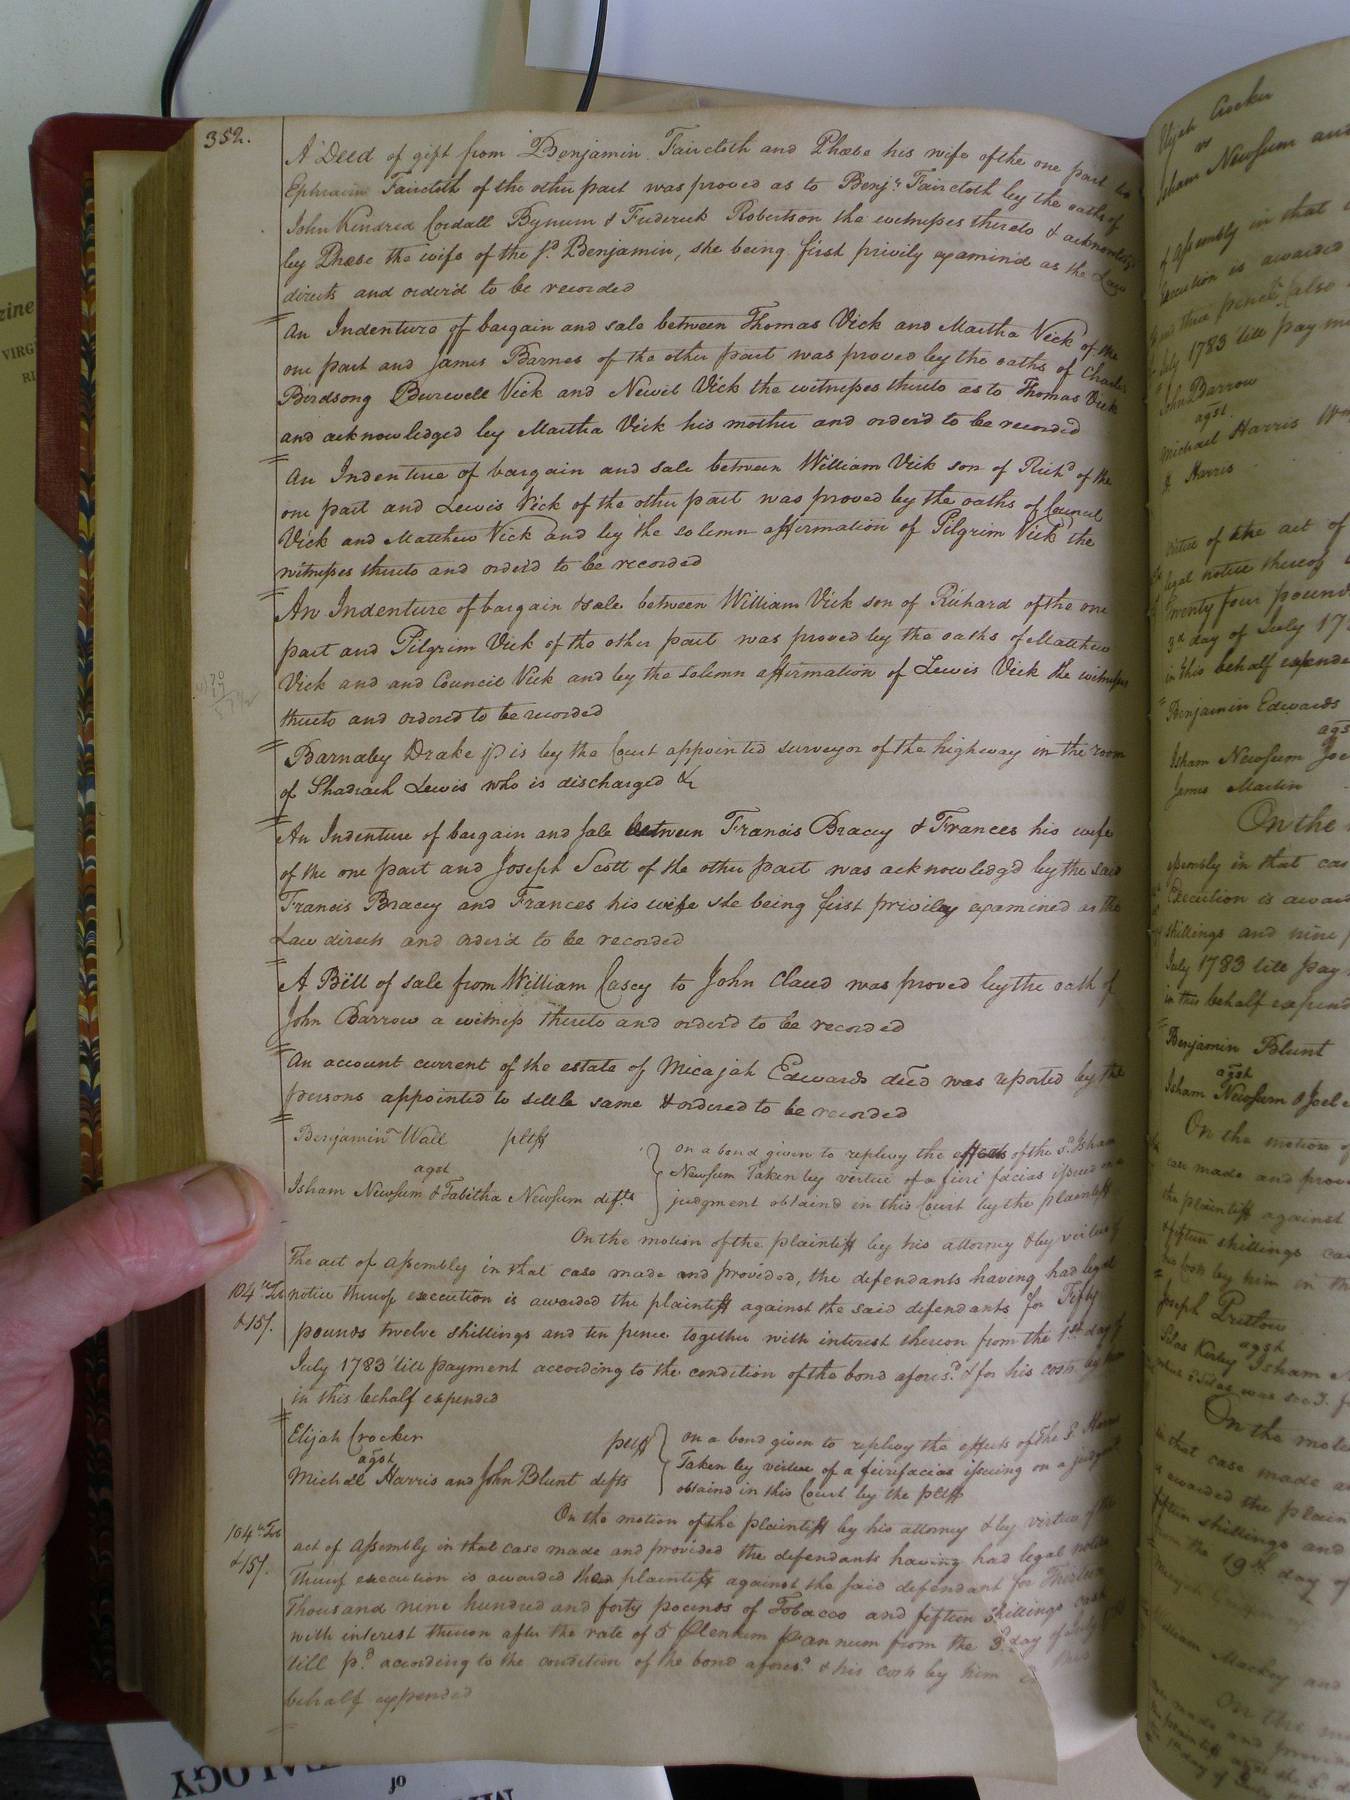 352.
A Deed of gift from Benjamin Faircloth and Phœbe his wife of the one part to
Ephraim Faircloth of the other part was proved as to Benj.ⁿ Faircloth by the oaths of
John Kindred Cordall Bynum & Frederick Robertson the witnesses thereto & acknowledg'd
by Phœbe the wife of the sd. Benjamin, she being first privily examin'd as the Law
directs and order'd to be recorded
An Indenture of bargain and sale between Thomas Vick and Martha Vick of the
one part and James Barnes of the other part was proved by the oaths of Charles
Birdsong Burwell Vick and Newit Vick the witnesses thereto as to Thomas Vick
and acknowledged by Martha Vick his mother and order'd to be recorded
An Indenture of bargain and sale between William Vick son of Richd of the
one part and Lewis Vick of the other part was proved by the oaths of Council
Vick and Matthew Vick and by the solemn affirmation of Pilgrim Vick the
witnesses thereto and order'd to be recorded
An Indenture of bargain & sale between William Vick son of Richard of the one
part and Pilgrim Vick of the other part was proved by the oaths of Matthew
Vick and and Council Vick and by the solemn affirmation of Lewis Vick the witnesses
thereto and ordered to be recorded
Barnaby Drake jr is by the Court appointed surveyor of the highway in the room
of Shadrach Lewis who is discharged &c
An Indenture of bargain and sale between Francis Bracey & Frances his wife
of the one part and Joseph Scott of the other part was acknowledg'd by the said
Francis Bracey and Frances his wife she being first privily examined as the
Law directs and order'd to be recorded
A Bill of sale from William Casey to John Claud was proved by the oath of
John Barrow a witness thereto and order'd to be recorded
An account current of the estate of Micajah Edwards decd was reported by the
persons appointed to settle same & ordered to be recorded
Benjamin Wall pltff
agst
Isham Newsum & Tabitha Newsum defts
on a bond given to replevy the effects of the sd. Isham
Newsum Taken by virtue of a fieri facias issued on a
judgment obtain'd in this Court by the plaintiff
On the motion of the plaintiff by his attorney & by virtue of
The act of assembly in that case made and provided, the defendants having had legal
104 lb Tob
& 15/.
notice thereof execution is awarded the plaintiff against the said defendants for Fifty
pounds twelve shillings and ten pence together with interest thereon from the 1st day of
July 1783 till payment according to the condition of the bond afores.d & for his costs by him
in this behalf expended
Elijah Crocker pltff
agst
Michael Harris and John Blunt defts
on a bond given to replevy the effects of the sd. Harris
Taken by virtue of a fierifacias issuing on a judgmt
obtaind in this Court by the pltff
On the motion of the plaintiff by his attorney & by virtue of the
104 lb Tob
& 15/.
act of assembly in that case made and provided the defendants having had legal notice
Thereof execution is awarded the plaintiffs against the said defendant for Thirteen
Thousand nine hundred and forty pounds of Tobacco and fifteen shillings cash
with interest thereon after the rate of 5 Pr Centum Pr annum from the 3d. day of July 1783
till pd. according to the condition of the bond afores.d & his costs by him in this
behalf expended
Elijah Crocker
vs
Isham Newsum and
of assembly in that
execution is awarded
and three pence (also
July 1783 till paym
John Barrow
agst
Michael Harris Wm
& Harris
virtue of the act of
legal notice thereof
Twenty four pounds
3d day of July 17
in this behalf expende
Benjamin Edwards
agst
Isham Newsum Joel
James Martin
On the
assembly in that cas
Execution is award
shillings and nine p
July 1783 till pay
in this behalf expend
Benjamin Blunt
agst
Isham Newsum & Joel
On the motion of
case made and provi
the plaintiff against
& fifteen shillings ca
his costs by him in th
Joseph Pretlow
agst
Silas Kirby Isham N
On the motio
in that case made an
is awarded the plain
fifteen shillings and
from the 19th day of
Mackey and
On the mo
zine
VIRG
of